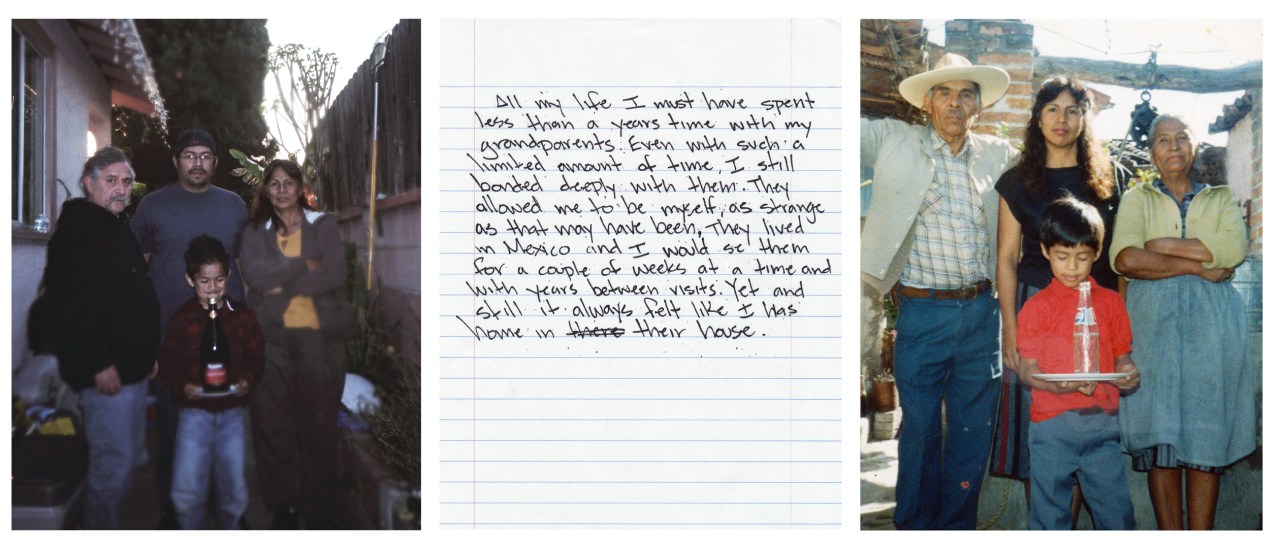 All my life I must have spent
less than a years time with my
grandparents. Even with such a
limited amount of time, I still
bonded deeply with them. They
allowed me to be myself, as strange
as that may have been. They lived
in Mexico and I would se them
for a couple of weeks at a time and
with years between visits. Yet and
still it always felt like I has
home in there their house.